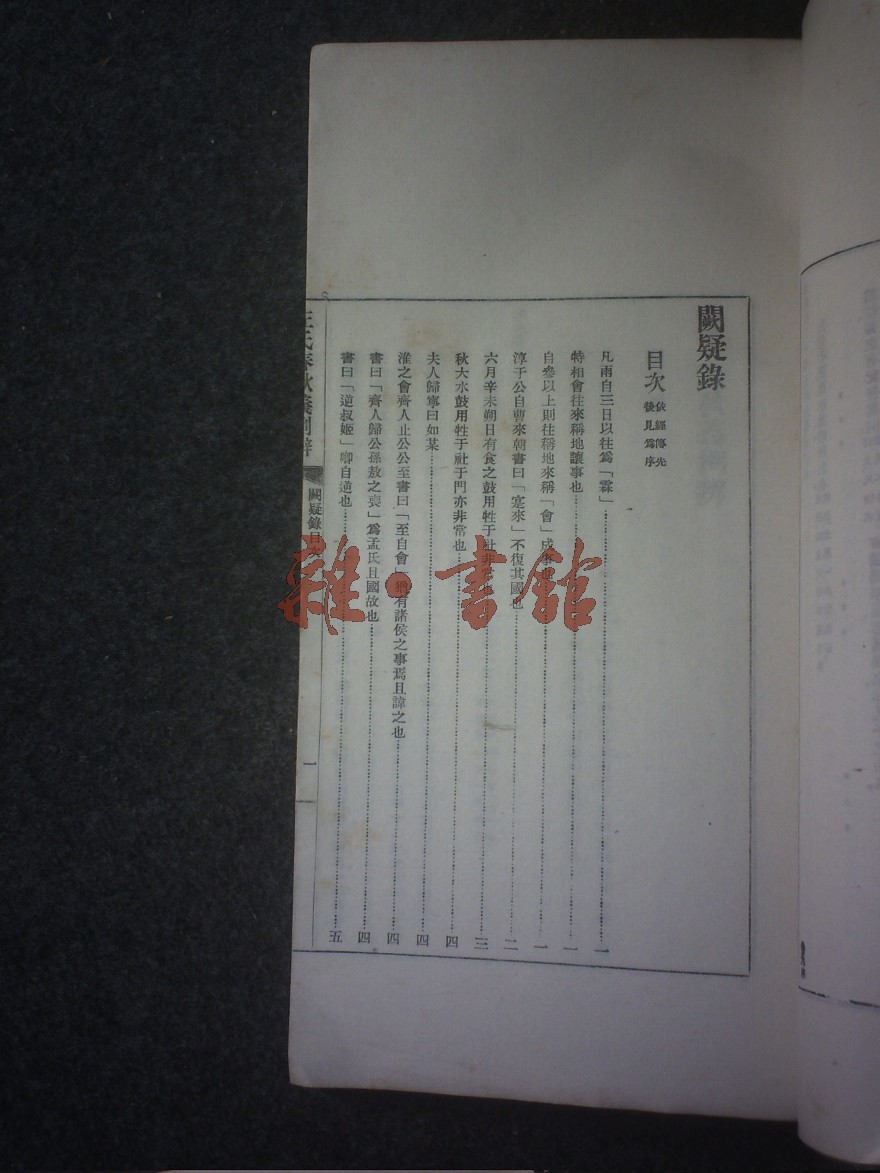 闕疑錄
目次 依經傳先後見爲序
凡雨自三日以往爲「霖」 一
特相會往來稱地讓事也 一
自參以上則往稱地來稱「會」成事 一
淳于公自曹來朝書曰「寔來」不復其國也 二
六月辛未朔日有食之鼓用牲于社非常 三
秋大水鼓用牲于社于門亦非常也 四
夫人歸寧曰如某 四
淮之會齊人止公公至書曰「至自會」猶有諸侯之事焉且諱之也 四
書曰「齊人歸公孫敖之喪」爲孟氏且國故也 四
書曰「逆叔姬」卿自逆也 五
氏春秋義
闕疑錄目次
一
雜·書館